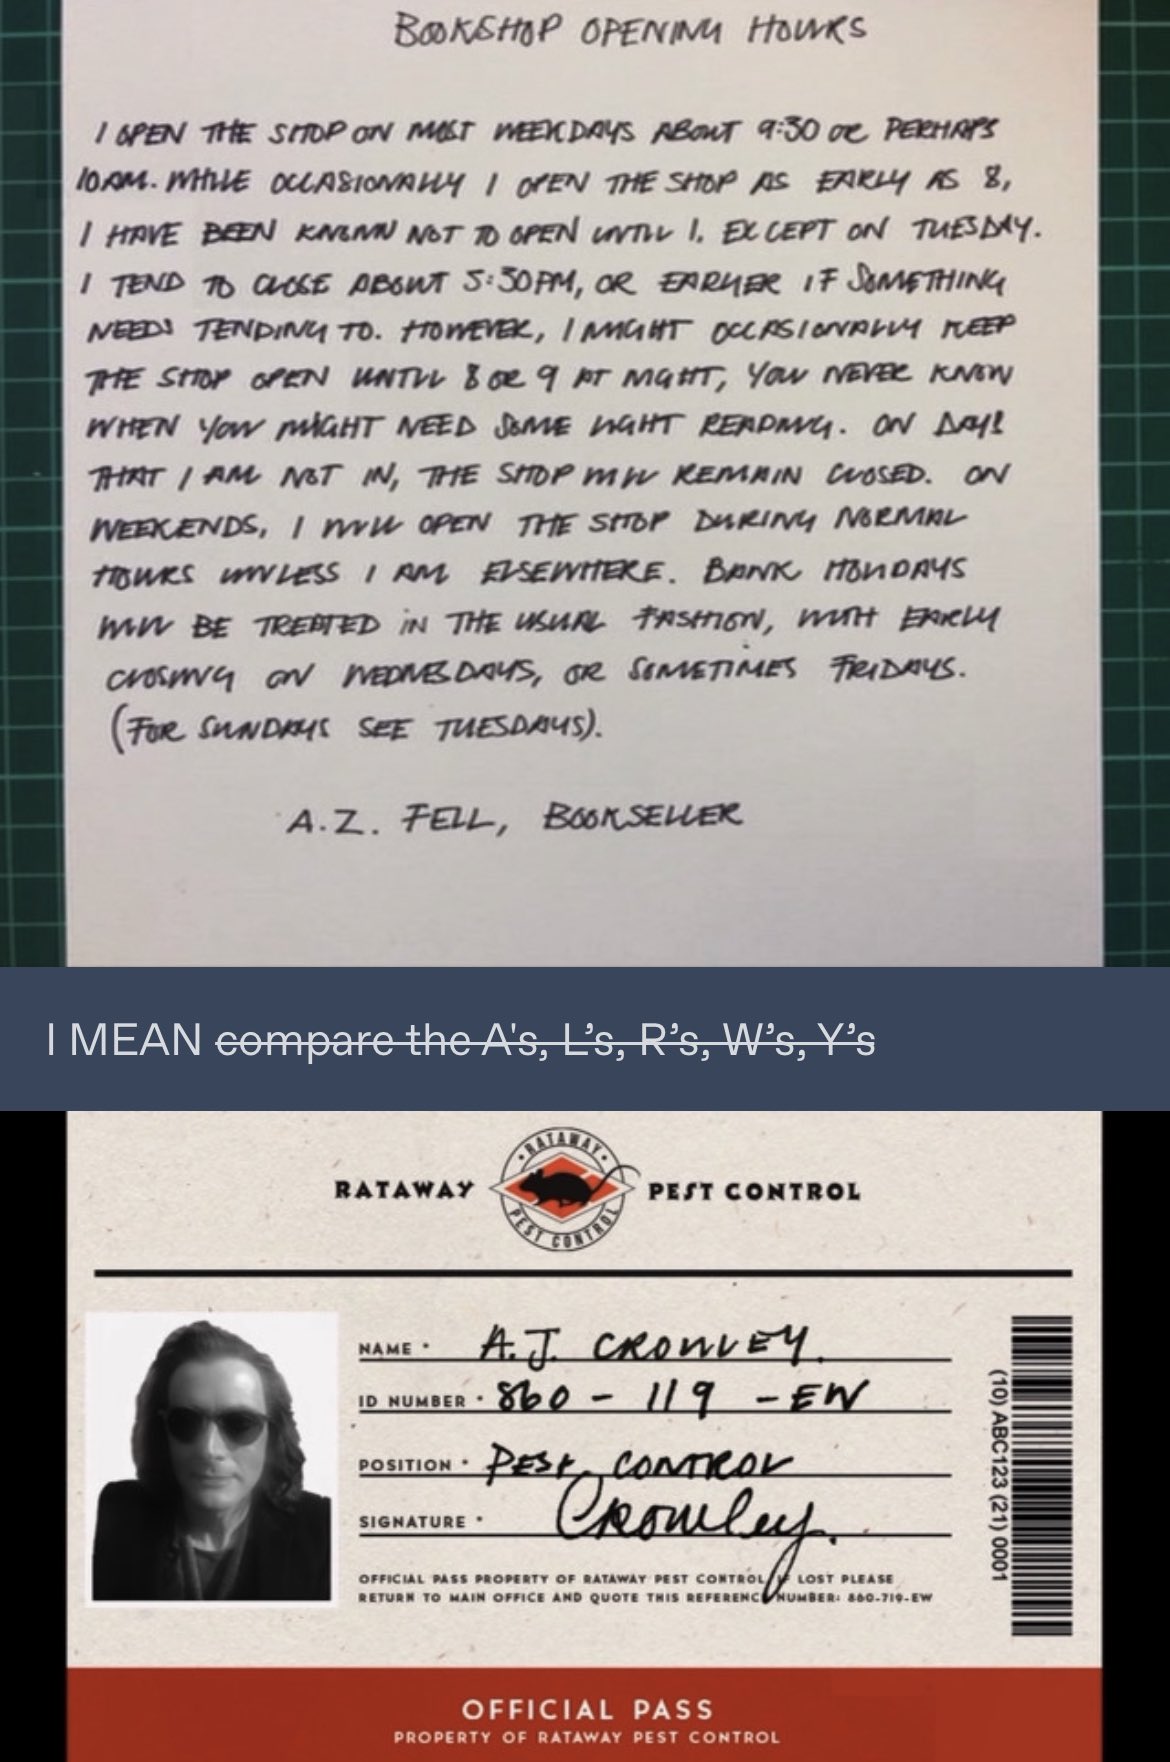 BOOKSHOP OPENING HOURS
I OPEN THE SHOP ON MOST WEEKDAYS ABOUT 9:30 OR PERHAPS
10AM. WHILE OCCASIONALLY I OPEN THE SHOP AS EARLY AS 8,
I HAVE BEEN KNOWN NOT TO OPEN UNTIL 1. EXCEPT ON TUESDAY.
I TEND TO CLOSE ABOUT 5:30PM, OR EARLIER IF SOMETHING
NEEDS TENDING TO. HOWEVER, I MIGHT OCCASIONALLY KEEP
THE SHOP OPEN UNTIL 8 OR 9 AT NIGHT, YOU NEVER KNOW
WHEN YOU MIGHT NEED SOME LIGHT READING. ON DAYS
THAT I AM NOT IN, THE SHOP WILL REMAIN CLOSED. ON
WEEKENDS, I WILL OPEN THE SHOP DURING NORMAL
HOURS UNLESS I AM ELSEWHERE. BANK HOLIDAYS
WILL BE TREATED IN THE USUAL FASHION, WITH EARLY
CLOSING ON WEDNESDAYS, OR SOMETIMES FRIDAYS.
(FOR SUNDAYS SEE TUESDAYS).
A.Z. FELL, BOOKSELLER
I MEAN compare the A's, L's, R's, W's, Y's
RATAWAY
RATAWAY PEST CONTROL
PEST CONTROL
NAME • A.J. CROWLEY.
ID NUMBER • 860 - 119 - EW
POSITION • PEST CONTROL
SIGNATURE • Crowley.
OFFICIAL PASS PROPERTY OF RATAWAY PEST CONTROL IF LOST PLEASE
RETURN TO MAIN OFFICE AND QUOTE THIS REFERENCE NUMBER: 860-719-EW
(10) ABC123 (21) 0001
OFFICIAL PASS
PROPERTY OF RATAWAY PEST CONTROL